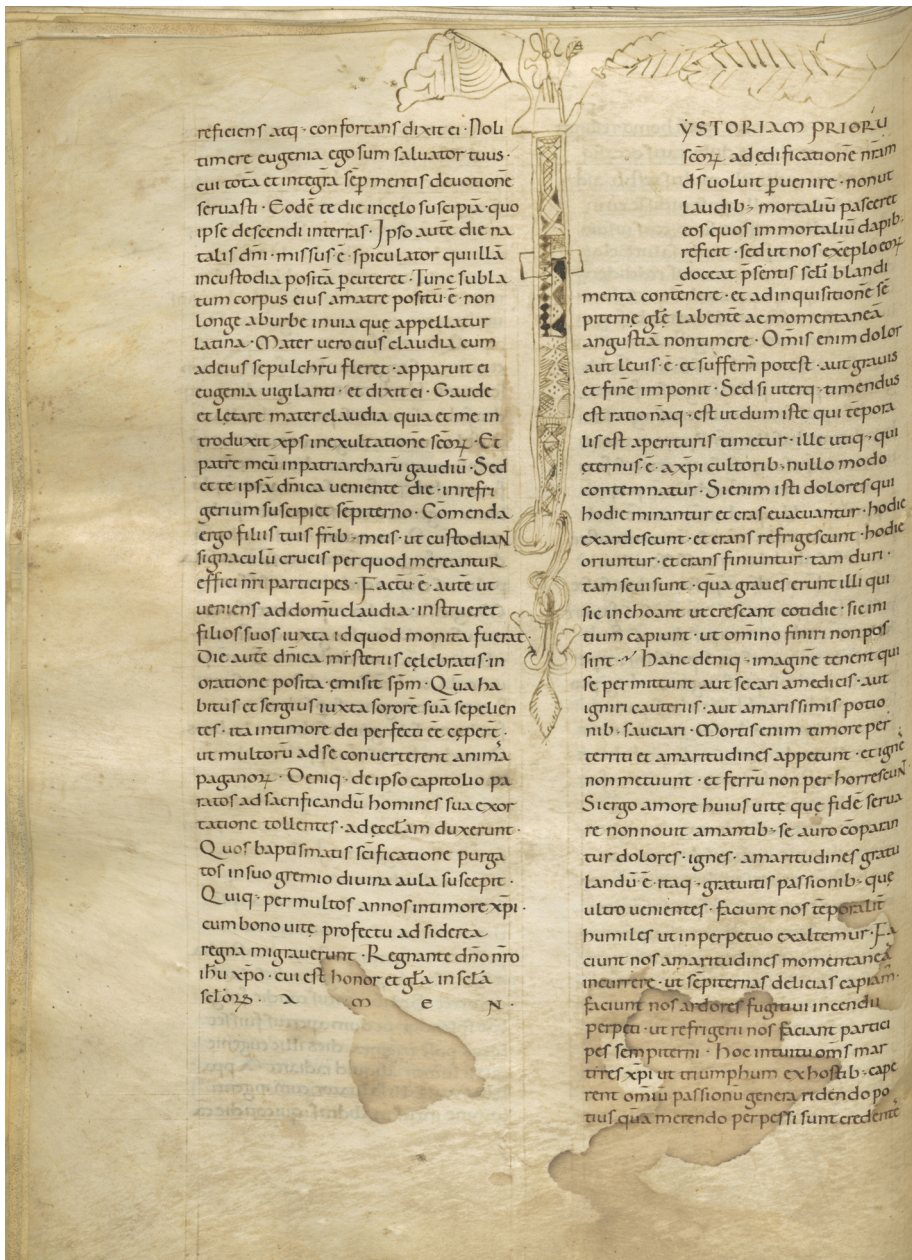 reficiens atq· confortans dixit ei · Noli
timere eugenia ego sum salvator tuus·
cui tota et integra sēp mentis devotione
servasti · Eodē te die incelo suscipiā · quo
ipse descendi interras · Ipso autē die na
talis dn̄i · missus ē · spiculator qui illā
incustodia positā p̄cuteret · Tunc subla
tum corpus eius amatre positū ē · non
longe aburbe invia quę appellatur
latina · Mater vero eius claudia cum
adeius sepulchrū fleret · apparuit ei
eugenia vigilanti · et dixit ei · Gaude
et lętare mater claudia quia et me in
troduxit xp̄s inexultatione sc̄oꝝ · Et
patrē meū inpatriarcharū gaudiū · Sed
et te ipsā dn̄ica veniente die · inrefri
gerium suscipiet sēpiterno · Cōmenda
ergo filiis tuis fr̄ib· meis · ut custodiaN
signaculū crucis per quod mereantur
effici nr̄i participes · Factū ē · autē ut
veniens ad domū claudia · instrueret
filios suos iuxta id quod monita fuerat·
Die autē dn̄ica misteriis cęlebratis · in
oratione posita · emisit sp̄m · Quā ha
bitus et sergius iuxta sororē suā sepelien
tes · ita intimore dei perfecti eē cęper̄t ·
ut multorū ad se converterent animā
paganoꝝ · Deniq· de ipso capitolio pa
ratos ad sacrificandū homines sua exor
tatione tollentes · ad ęccłam duxerunt ·
Quos baptismatis sc̄ificatione purga
tos insuo gremio divina aula suscepit ·
Quiq· per multos annos intimore xp̄i ·
cum bono vitę profectu ad siderea
regna migraverunt · Regnante dn̄o nr̄o
ih̄u xp̄o · cui est honor et gła in secła
secłorꝫ · A M E N ·
ẎSTORIAM PRIORŪ
sc̄oꝝ ad edificationē nr̄am
ds̄ voluit p̄venire · non ut
laudib· mortaliū pasceret
eos quos immortaliū dapib·
reficit · sed ut nos exēplo eoꝝ
doceat p̄sentis secłi blandi
menta contēnere · et ad inquisitionē sē
piternę głę labentē ac momentaneā
angustiā non timere · Om̄is enim dolor
aut levis ē · et sufferri potest · aut gravis
et finē imponit · Sed si uterq· timendus
est ratio naq· est ut dum iste qui tēpora
lis est aperituris timetur · ille utiq· qui
eternus ē · a xp̄i cultorib· nullo modo
contemnatur · Si enim isti dolores qui
hodie minantur et cras evacuantur · hodie
exardescunt · et crans refrigescunt · hodie
oriuntur · et crans finiuntur · tam duri ·
tam sevi sunt · quā graves erunt illi qui
sic inchoant ut crescant cotidie · sic ini
tium capiunt · ut om̄ino finiri non pos
sint · Hanc deniq· imaginē tenent qui
se permittunt aut secari amedicis · aut
igniri cauteriis · aut amarissimis potio
nib· sauciari · Mortis enim timore per
territi et amaritudines appetunt · et ignē
non metuunt · et ferrū non per horrescuN̄
Si ergo amore huius vitę quę fidē serva
re non novit amantib· se auro cōparan
tur dolores · ignes · amaritudines gratu
landū ē · itaq· gratuitis passionib· quę
ultro venientes · faciunt nos tēporalit̄
humiles ut in perpetuo exaltemur · Fa
ciunt nos amaritudines momentaneā
incurrere · ut sēpiternas delicias capiam̄ ·
faciunt nos ardores fugitivi incendii
perpeti · ut refrigerii nos faciant partici
pes sempiterni · Hoc intuitu om̄s mar
tires xp̄i ut triumphum ex hostib· cape
rent om̄iū passionū genera ridendo po
tius quā merendo perpessi sunt credentē